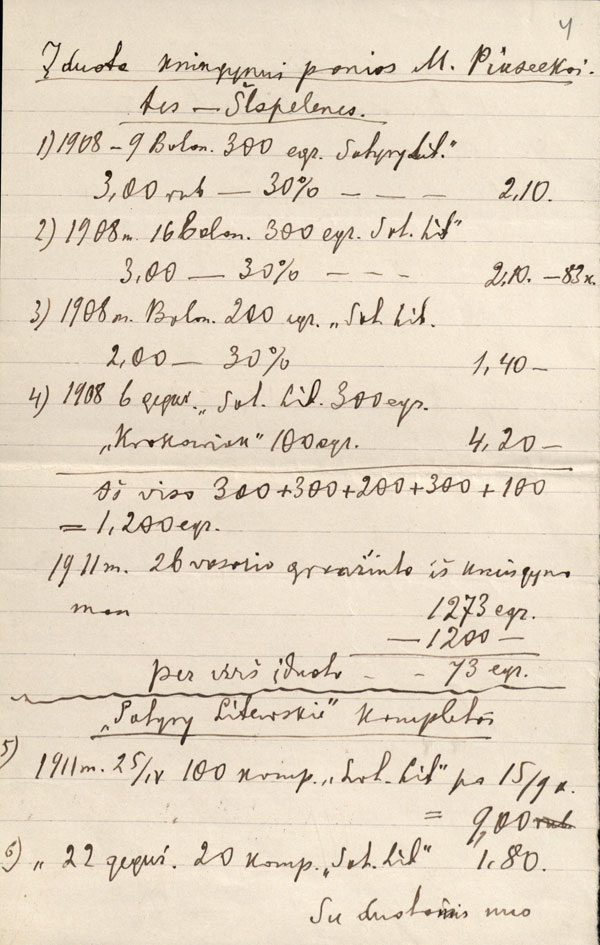 4
Įduota kningynui ponios M. Piaseckai-
tes — Šlapelenes.
1) 1908 – 9 Balan. 300 egz. Satyry Lit."
3,00 rub — 30% — — — 2,10.
2) 1908 m. 16 Balan. 300 egz. Sat. Lit"
3,00 — 30% – – – 2,10. – 83 k.
3) 1908 m. Balan. 200 egz. „Sat. Lit.
2,00 — 30% 1,40 –
4) 1908 6 geguž. „Sat. Lit. 300 egz.
„Krakowiak" 100 egz. 4,20 –
Iš viso 300+300+200+300+100
= 1,200 egz.
1911 m. 26 vasario gražinta iš kningyno
man 1273 egz.
— 1200 —
per virš įduota – – 73 egz.
„Satyry Litewskie" kompletos
5) 1911 m. 25/IV 100 komp. „Sat. Lit" po 15/9 k.
= 9,00 rub
6) „ 22 geguž. 20 komp. „Sat. Lit" 1.80.
Su duotomis nuo